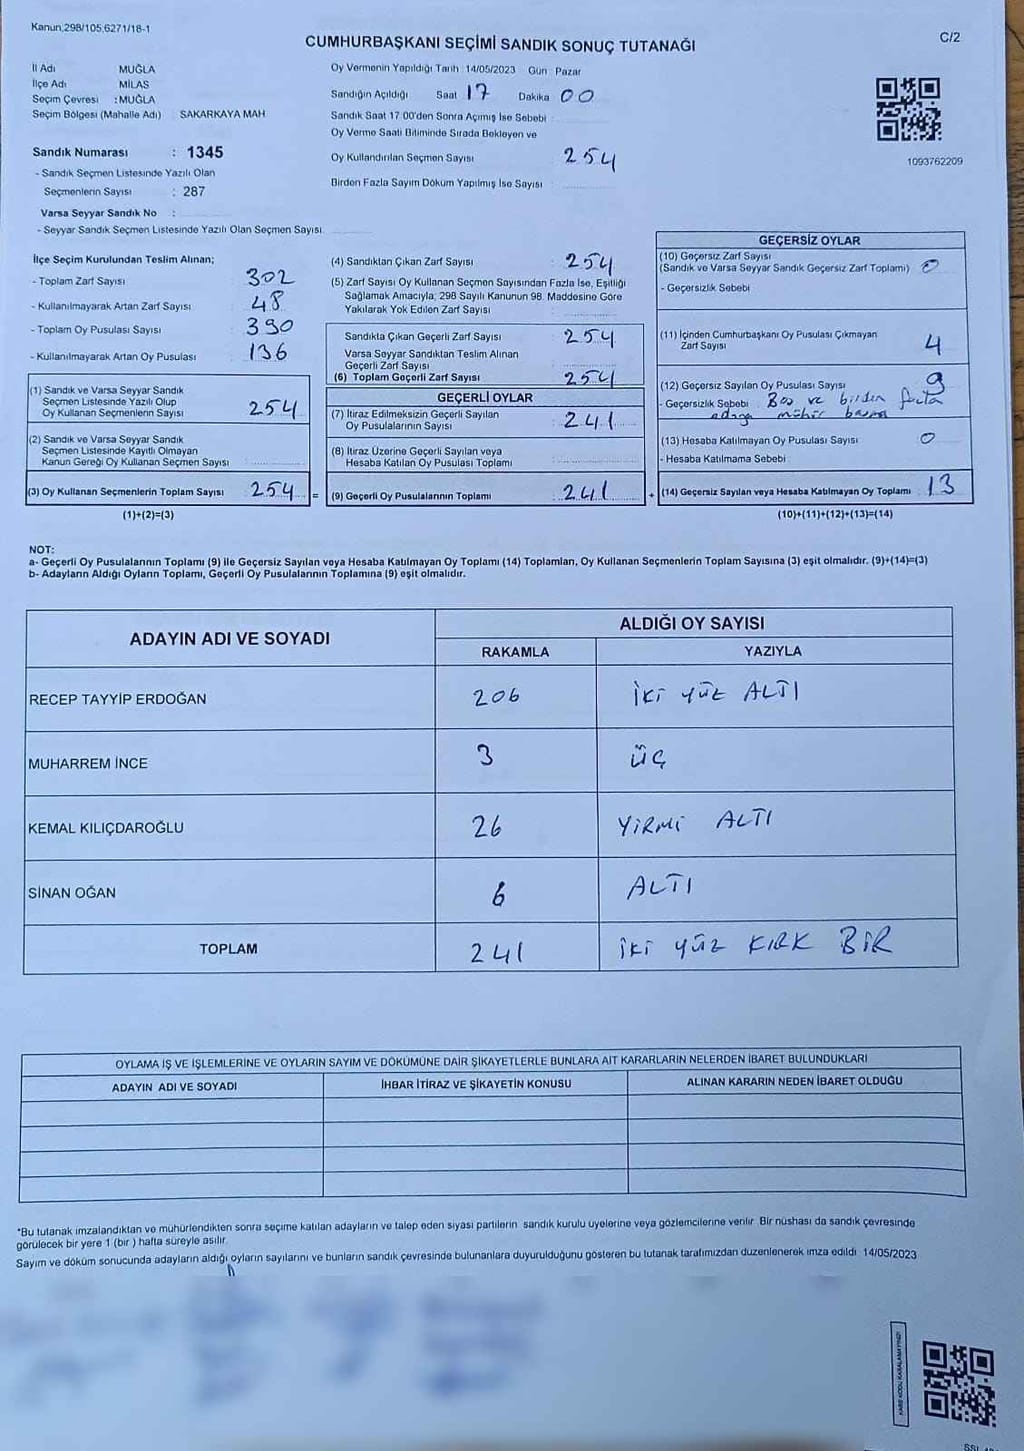 Kanun,298/105,6271/18-1
C/2
CUMHURBAŞKANI SEÇİMİ SANDIK SONUÇ TUTANAĞI
İl Adı MUĞLA
İlçe Adı MİLAS
Seçim Çevresi :MUĞLA
Seçim Bölgesi (Mahalle Adı) : SAKARKAYA MAH
Sandık Numarası : 1345
- Sandık Seçmen Listesinde Yazılı Olan
Seçmenlerin Sayısı : 287
Varsa Seyyar Sandık No :
- Seyyar Sandık Seçmen Listesinde Yazılı Olan Seçmen Sayısı
Oy Vermenin Yapıldığı Tarih :14/05/2023 Gün : Pazar
Sandığın Açıldığı Saat 17 Dakika 00
Sandık Saat 17:00'den Sonra Açımış İse Sebebi :
Oy Verme Saati Bitiminde Sırada Bekleyen ve
Oy Kullandırılan Seçmen Sayısı 254
Birden Fazla Sayım Döküm Yapılmış İse Sayısı :
1093762209
İlçe Seçim Kurulundan Teslim Alınan;
- Toplam Zarf Sayısı 302
- Kullanılmayarak Artan Zarf Sayısı 48
- Toplam Oy Pusulası Sayısı : 390
- Kullanılmayarak Artan Oy Pusulası : 136
(1) Sandık ve Varsa Seyyar Sandık
Seçmen Listesinde Yazılı Olup
Oy Kullanan Seçmenlerin Sayısı : 254
(2) Sandık ve Varsa Seyyar Sandık
Seçmen Listesinde Kayıtlı Olmayan
Kanun Gereği Oy Kullanan Seçmen Sayısı :
(3) Oy Kullanan Seçmenlerin Toplam Sayısı : 254 =
(1)+(2)=(3)
(4) Sandıktan Çıkan Zarf Sayısı : 254
(5) Zarf Sayısı Oy Kullanan Seçmen Sayısından Fazla İse, Eşitliği
Sağlamak Amacıyla; 298 Sayılı Kanunun 98. Maddesine Göre
Yakılarak Yok Edilen Zarf Sayısı :
Sandıkta Çıkan Geçerli Zarf Sayısı : 254
Varsa Seyyar Sandıktan Teslim Alınan
Geçerli Zarf Sayısı :
(6) Toplam Geçerli Zarf Sayısı : 254
GEÇERLİ OYLAR
(7) İtiraz Edilmeksizin Geçerli Sayılan
Oy Pusulalarının Sayısı : 241
(8) İtiraz Üzerine Geçerli Sayılan veya
Hesaba Katılan Oy Pusulası Toplamı :
(9) Geçerli Oy Pusulalarının Toplamı : 241 +
GEÇERSİZ OYLAR
(10) Geçersiz Zarf Sayısı
(Sandık ve Varsa Seyyar Sandık Geçersiz Zarf Toplamı) : 0
- Geçersizlik Sebebi
(11) İçinden Cumhurbaşkanı Oy Pusulası Çıkmayan
Zarf Sayısı 4
(12) Geçersiz Sayılan Oy Pusulası Sayısı 9
- Geçersizlik Sebebi : Boş ve birden fazla
adaya mühür basma
(13) Hesaba Katılmayan Oy Pusulası Sayısı : 0
- Hesaba Katılmama Sebebi
(14) Geçersiz Sayılan veya Hesaba Katılmayan Oy Toplamı : 13
(10)+(11)+(12)+(13)=(14)
NOT:
a- Geçerli Oy Pusulalarının Toplamı (9) ile Geçersiz Sayılan veya Hesaba Katılmayan Oy Toplamı (14) Toplamları, Oy Kullanan Seçmenlerin Toplam Sayısına (3) eşit olmalıdır. (9)+(14)=(3)
b- Adayların Aldığı Oyların Toplamı, Geçerli Oy Pusulalarının Toplamına (9) eşit olmalıdır.
ADAYIN ADI VE SOYADI ALDIĞI OY SAYISI
RAKAMLA YAZIYLA
RECEP TAYYİP ERDOĞAN 206 İKİ YÜZ ALTI
MUHARREM İNCE 3 ÜÇ
KEMAL KILIÇDAROĞLU 26 YİRMİ ALTI
SİNAN OĞAN 6 ALTI
TOPLAM 241 İKİ YÜZ KIRK BİR
OYLAMA İŞ VE İŞLEMLERİNE VE OYLARIN SAYIM VE DÖKÜMÜNE DAİR ŞİKAYETLERLE BUNLARA AİT KARARLARIN NELERDEN İBARET BULUNDUKLARI
ADAYIN ADI VE SOYADI İHBAR İTİRAZ VE ŞİKAYETİN KONUSU ALINAN KARARIN NEDEN İBARET OLDUĞU
*Bu tutanak imzalandıktan ve mühürlendikten sonra seçime katılan adayların ve talep eden siyasi partilerin sandık kurulu üyelerine veya gözlemcilerine verilir. Bir nüshası da sandık çevresinde
görülecek bir yere 1 (bir ) hafta süreyle asılır.
Sayım ve döküm sonucunda adayların aldığı oyların sayılarını ve bunların sandık çevresinde bulunanlara duyurulduğunu gösteren bu tutanak tarafımızdan düzenlenerek imza edildi 14/05/2023
KARE KODU KARALAMAYINIZ!